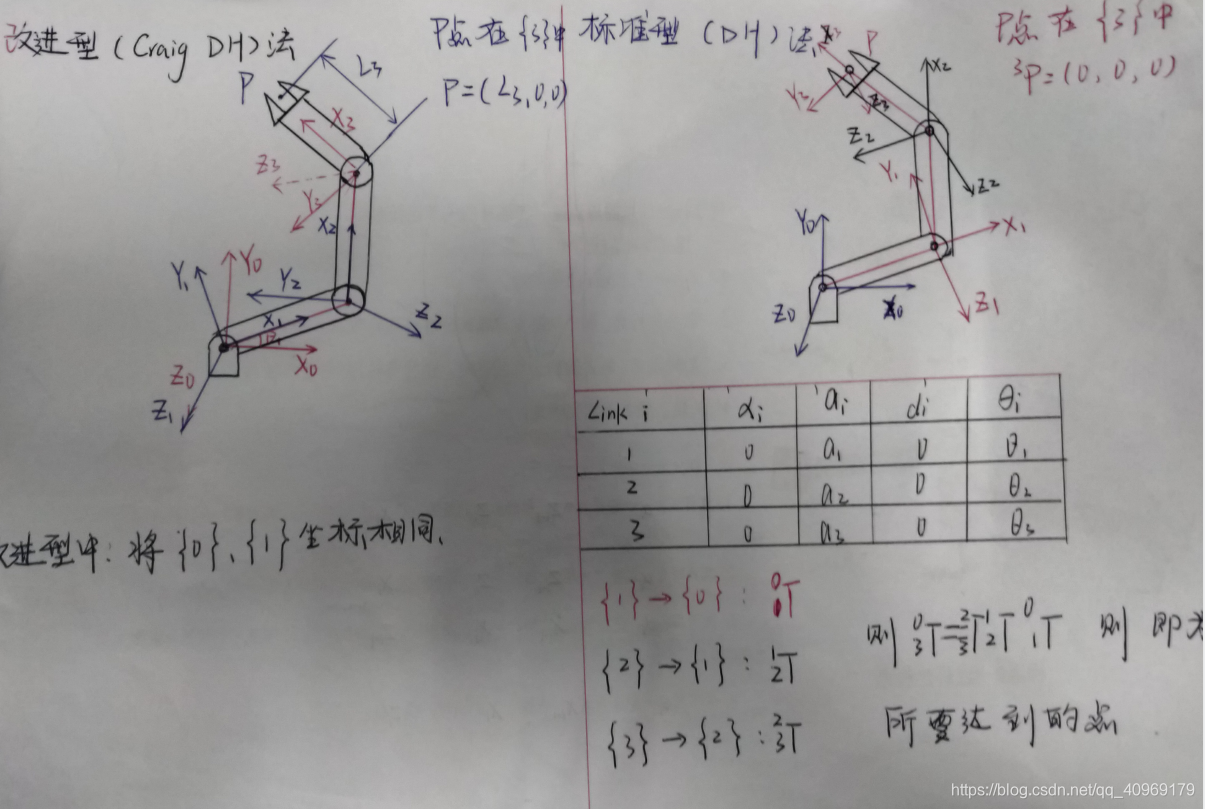 改进型 (Craig DH) 法
P点在{3}中
P=(L3,0,0)
P
L3
X3
Z3
Y3
X2
Y1
Y0
Y2
X1
Z2
X0
Z0
Z1
改进型中: 将{0}、{1}坐标相同、
标准型 (DH) 法
P点在{3}中
³P=(0,0,0)
P
Y3
Z3
X2
Z2
Y1
Z2
Y0
X1
Z0
X0
Z1
Link i αi ai di θi
1 0 a1 0 θ1
2 0 a2 0 θ2
3 0 a3 0 θ3
{1}→{0}: ⁰T
{2}→{1}: ¹₂T
{3}→{2}: ²₃T
则 ⁰₃T=²₃T ¹₂T ⁰₁T 则即为
所要达到的点
https://blog.csdn.net/qq_40969179